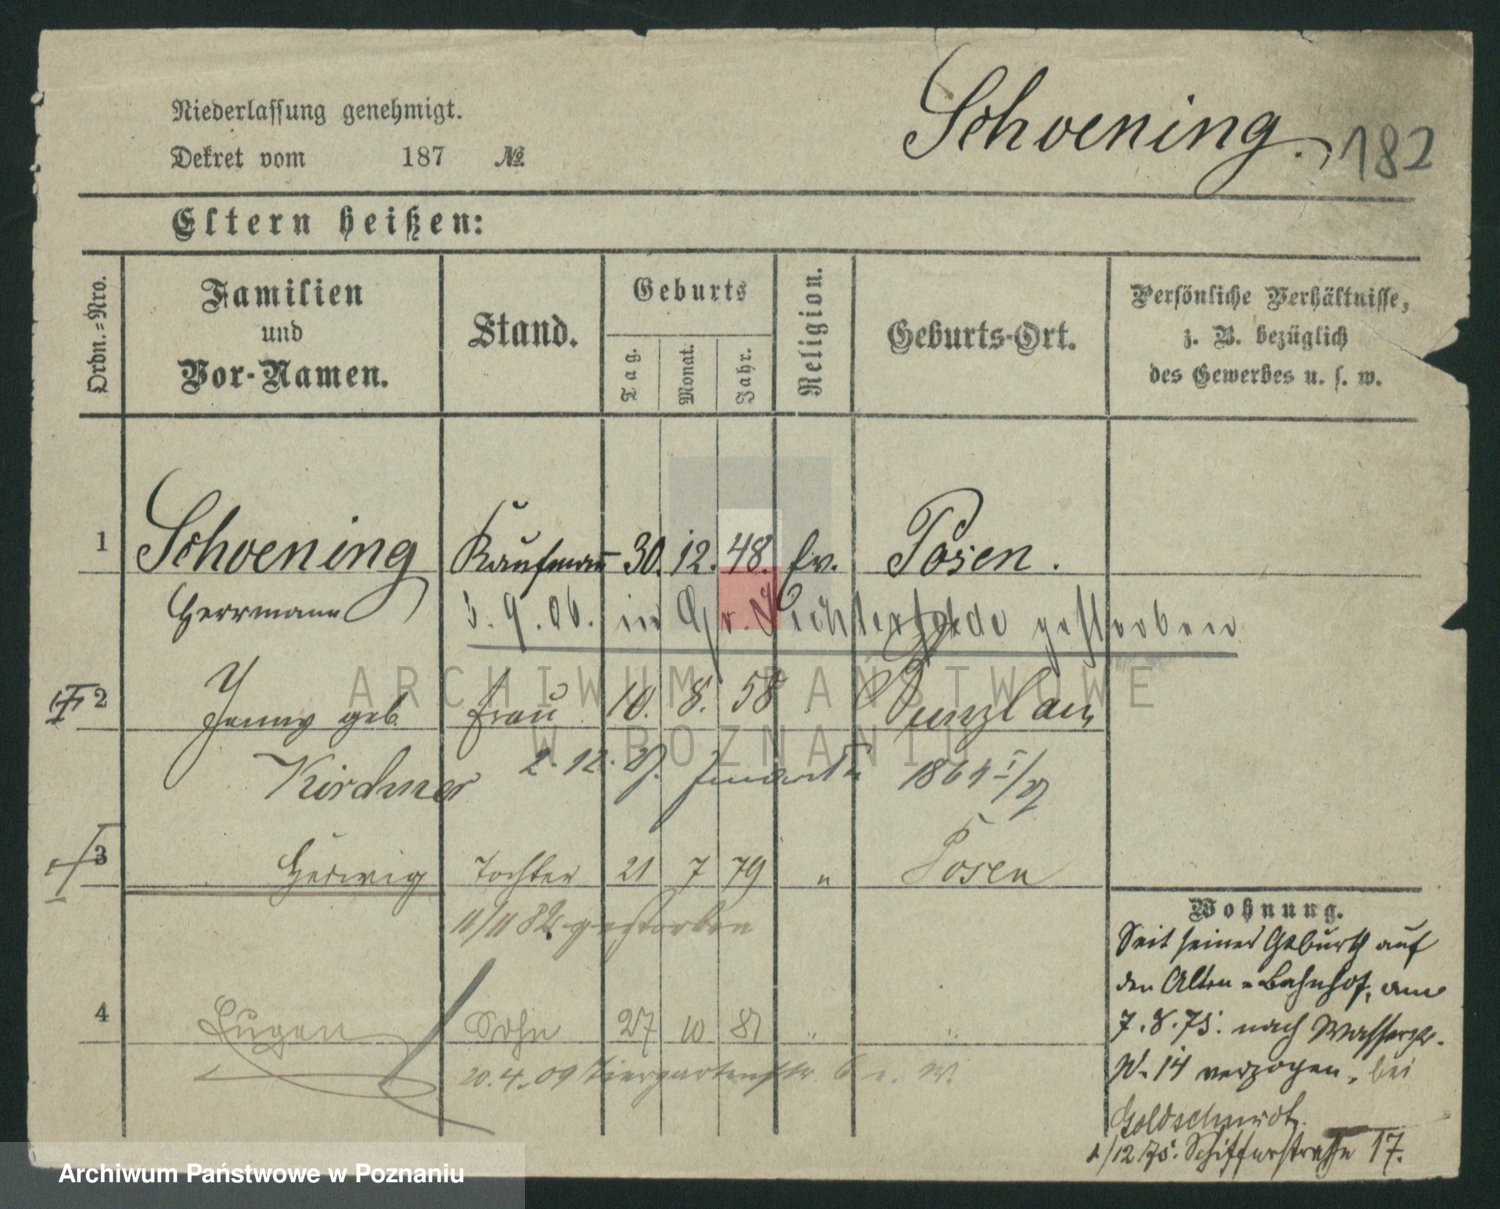 Niederlassung genehmigt.
Dekret vom 187 №
Schoening. 182
Eltern heißen:
Ordn.=Nro.
Familien
und
Vor-Namen.
Stand.
Geburts
Tag.
Monat.
Jahr.
Religion.
Geburts-Ort.
Persönliche Verhältnisse,
z. B. bezüglich
des Gewerbes u. s. w.
1 Schoening Kaufmann 30. 12. 48. ev. Posen.
Herrmann 3. 9. 06. in Gr. Lichterfelde gestorben
2 Jenny geb. Frau 10. 8. 58 Bunzlau
Kirchner 2. 12.
3 Hedwig Tochter 21 7 79 " Posen
11/11 82 gestorben
4 Eugen Sohn 27 10 81 " "
20.4.09 Tiergartenstr. 6
Wohnung.
Seit seiner Geburth auf
den Alten-Bahnhof, am
7.8.75. nach Wasserstr.
N. 14 verzogen, bei
Goldschmidt.
1/12 75. Schifferstraße 17.
ARCHIWUM PAŃSTWOWE
W POZNANIU
Archiwum Państwowe w Poznaniu